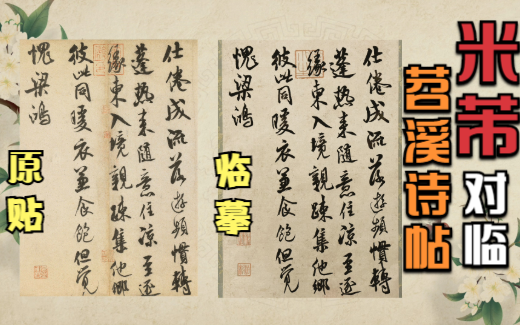 米芾
对临
苕溪诗帖
原贴
仕倦成流落遊頻慣轉
蓬熱来隨意住凉至逐
緣東入境親踈集他鄉
彼此同暖衣兼食飽但覺
愧梁鴻
临摹
仕倦成流落遊頻慣轉
蓬熱来隨意住凉至逐
緣東入境親踈集他鄉
彼此同暖衣兼食飽但覺
愧梁鴻